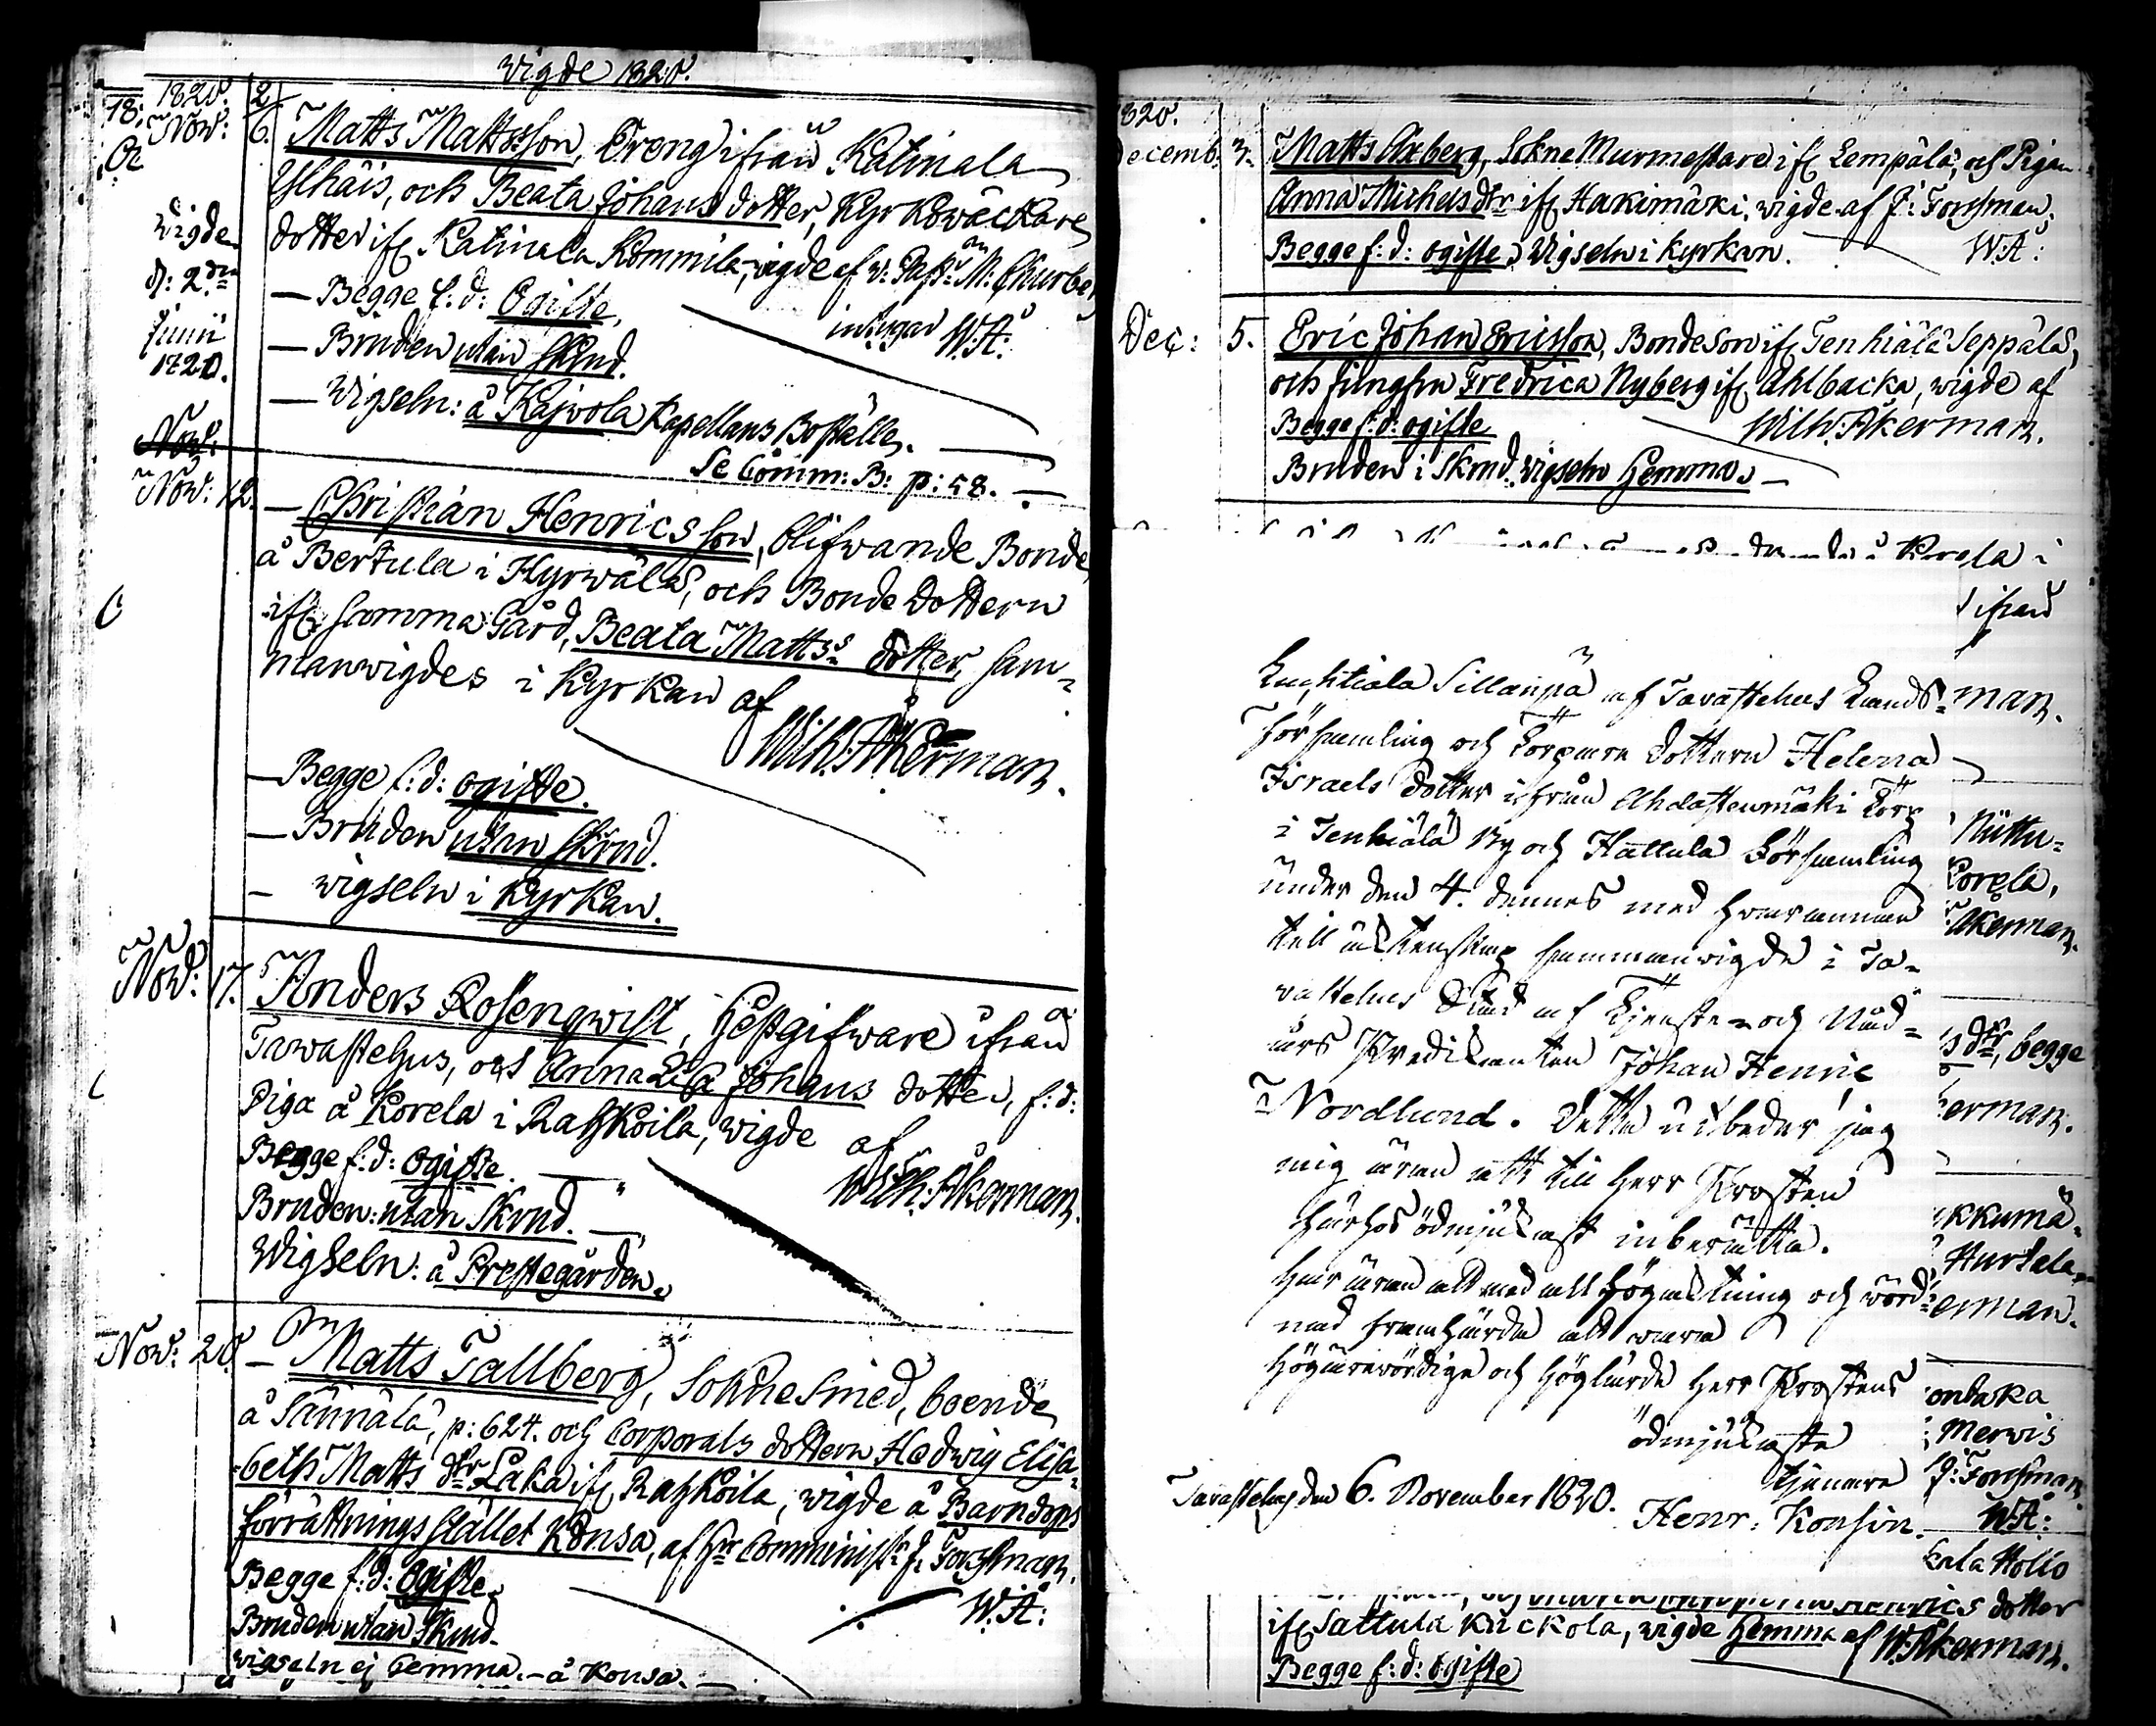 Wigde 1820.
1820.
Nov: 6. Matts Mattsson, Dreng ifrån Katinala
Ylhäis, och Beata Johans dotter, Kyrkowäcktare
dotter ifr Katinala Kommila, wigde af v: Past: M: Churberg
— Begge f: d: Ogifte,
W:Å:
— Bruden utan skrud.
— Wigseln: å Kajvola Kapellans Boställe.
Se Comm: B: p: 58. —
wigde
d: 2dn
Junii
Nov:
Nov: 12. — Christian Henricsson, blifwande Bonde
å Bertula i Hyrwälä, och Bonde dottern
ifr samma Gård, Beata Matts dotter, sam-
manwigdes i Kyrkan af
Wilh: Åkerman.
— Begge f: d: ogifte.
— Bruden utan skrud.
— wigseln i Kyrkan.
Nov: 17. Anders Rosenqwist, Gestgifware ifrån
Tawastehus, och Anna Lisa Johans dotter, f: d:
Piga å Korela i Rahkoila, wigde af
Begge f: d: ogifte.
Wilh: Åkerman.
Bruden: utan Skrud. —
Wigseln: å Prestegården.
Nov: 20. — Matts Tallberg, Sokne Smed, boende
å Sännälä, p: 624. och Corporals dottern Hedwig Elisa-
beth Matts dtr Laka ifr Rahkoila, wigde å Barndops
förrättnings stället Konsa, af Hr Comminist: J: Forssman.
Begge f: d: Ogifte.
W:Å:
Bruden utan Skrud.
wigseln ej hemma. — å Konsa. —
820.
Decemb: 3. Matts Axberg, Sokne Murmestare ifr Lempälä, och Pigan
Anna Michels dtr ifr Hakimäki, wigde af J: Forssman.
Begge f: d: ogifte, Wigseln i kyrkan.
W:Å:
Dec: 5. Eric Johan Ericsson, Bondeson ifr Tenhiälä Seppälä,
och Jungfrn Fredrica Nyberg ifr Ahlbacka, wigde af
Begge f: d: ogifte
Wilh: Åkerman.
Bruden i Skrud. wigseln hemma. —
å Korela i
ifrån
Luhtiala Sillanpä af Tavastehus Lands-
Församling och Torpare dottern Helena
Israels dotter ifrån Ahdastenmäki Torp
i Tenhiälä By och Hattula Församling
under den 4. dennes med hvarannan
till äktenskap sammanvigde i Ta-
vastehus Stad af Tjenste- och Nåd-
års Predikanten Johan Henric
Nordlund. Detta utbeder jag
mig äran att till Herr Prosten
härhos ödmjukast inberätta.
Har äran att med all högaktning och vörd-
nad framhärda att vara
Högärevördige och Höglärde Herr Prostens
ödmjukaste
tjenare
Tavastehus den 6. November 1820. Henr: Konsin.
man.
Korela,
Åkerman.
dtr, begge
erman.
Hurtala
erman.
Merwis
J: Forssman
W:Å:
kala Hollo
Henrics dotter
ifr Sattula Kuckola, wigde hemma af W:Åkerman.
Begge f: d: ogifte